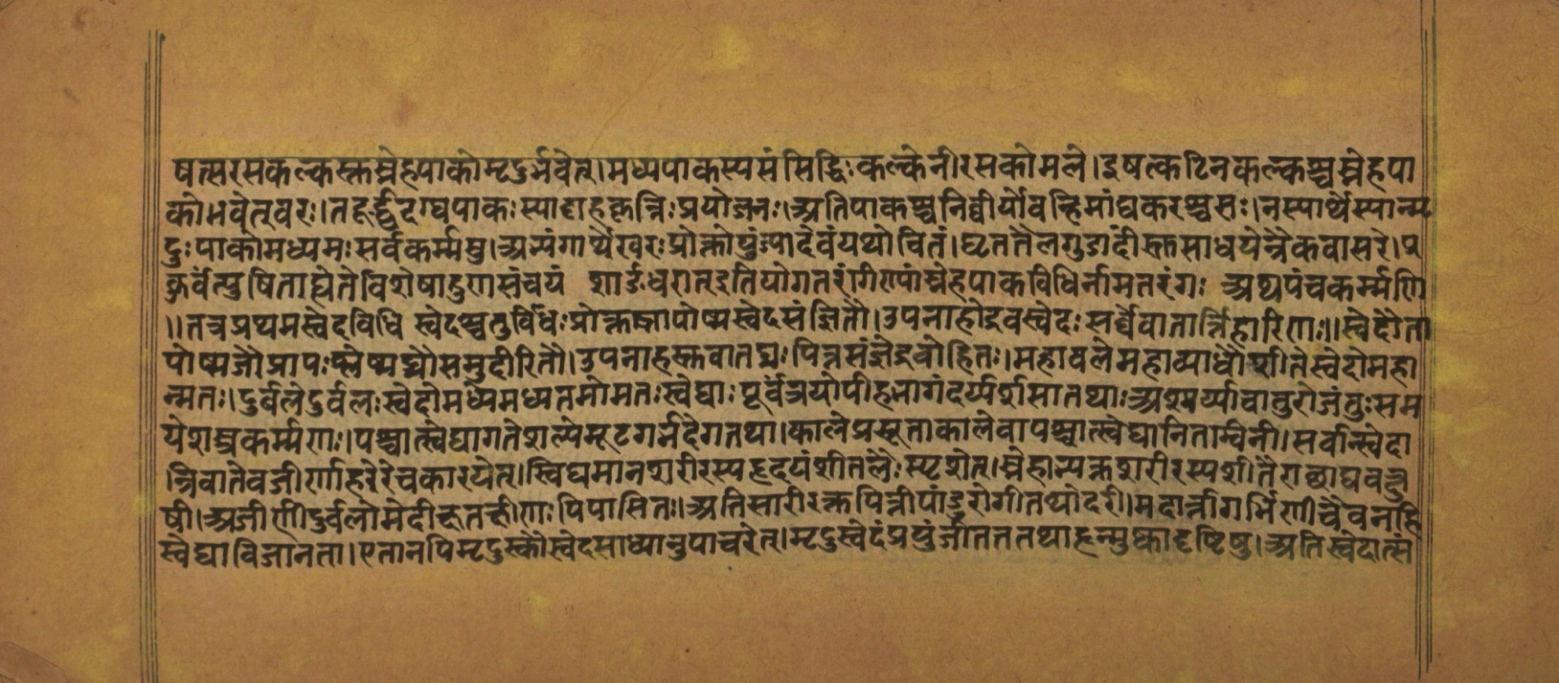 षत्सरसकल्कस्तुस्नेहपाकोमृदुर्भवेत्।मध्यपाकस्यसंसिद्धिःकल्केनीरसकोमले।इषत्कठिनकल्कश्चस्नेहपा
कोभवेत्खरः।तदूर्द्ध्वदग्धपाकःस्याद्दाहकृन्निःप्रयोजनः।अतिपाकश्चनिर्वीर्योवन्हिमांद्यकरश्चसः।नस्यार्थेस्यान्मृ
दुःपाकोमध्यमःसर्वकर्म्मसु।अभ्यंगार्थेखरःप्रोक्तोयुंज्यादेवंयथोचितं।घृततैलगुडादींस्तुसाधयेन्नैकवासरे।प्र
कुर्वंत्युषिताह्येतेविशेषाद्गुणसंचयं शार्ङ्गधरातइतियोगतरंगिण्यांस्नेहपाकविधिर्नामतरंगः अथपंचकर्म्माणि
।।तत्रप्रथमस्वेदविधि स्वेदश्चतुर्विधःप्रोक्तस्तापोष्मस्वेदसंज्ञितौ।उपनाहोद्रवस्वेदःसर्वेवातार्त्तिहारिणः।।स्वेदौता
पोष्मजौप्रायःश्लेष्मघ्नौसमुदीरितौ।उपनाहस्तुवातघ्नःपित्तसंज्ञेद्रवोहितः।महाबलेमहाव्याधौशीतेस्वेदोमहा
न्मतः।दुर्बलेदुर्वलःस्वेदोमध्यमेमध्यतमोमतःस्वेद्याःपूर्वंत्रयोपीहभगंदर्य्यर्शसातथाःअश्मर्य्याचातुरोजंतुःसम
येशस्त्रकर्म्मणः।पश्चात्स्वेद्यागतेशल्येमूढगर्भगदेतथा।कालेप्रसूताकालेवापश्चात्स्वेद्यानितम्बिनी।सर्वान्स्वेदा
न्निवातेचजीर्णाहारेचकारयेत्।स्विद्यमानशरीरस्यहृदयंशीतलैःस्पृशेत्।स्नेहाभ्यक्तशरीरस्यशीतैराछाद्यचक्षु
षी।अजीर्णीदुर्बलोमेहीक्षतक्षीणःपिपासितः।अतिसारीरक्तपित्तीपांडुरोगीतथोदरी।मदार्त्तोगर्भिणीचैवनहि
स्वेद्याविजानता।एतानपिमृदुस्वेदैःस्वेदसाध्यानुपाचरेत्।मृदुस्वेदंप्रयुंजीतततथाहृन्मुष्कदृष्टिषु।अतिस्वेदात्सं